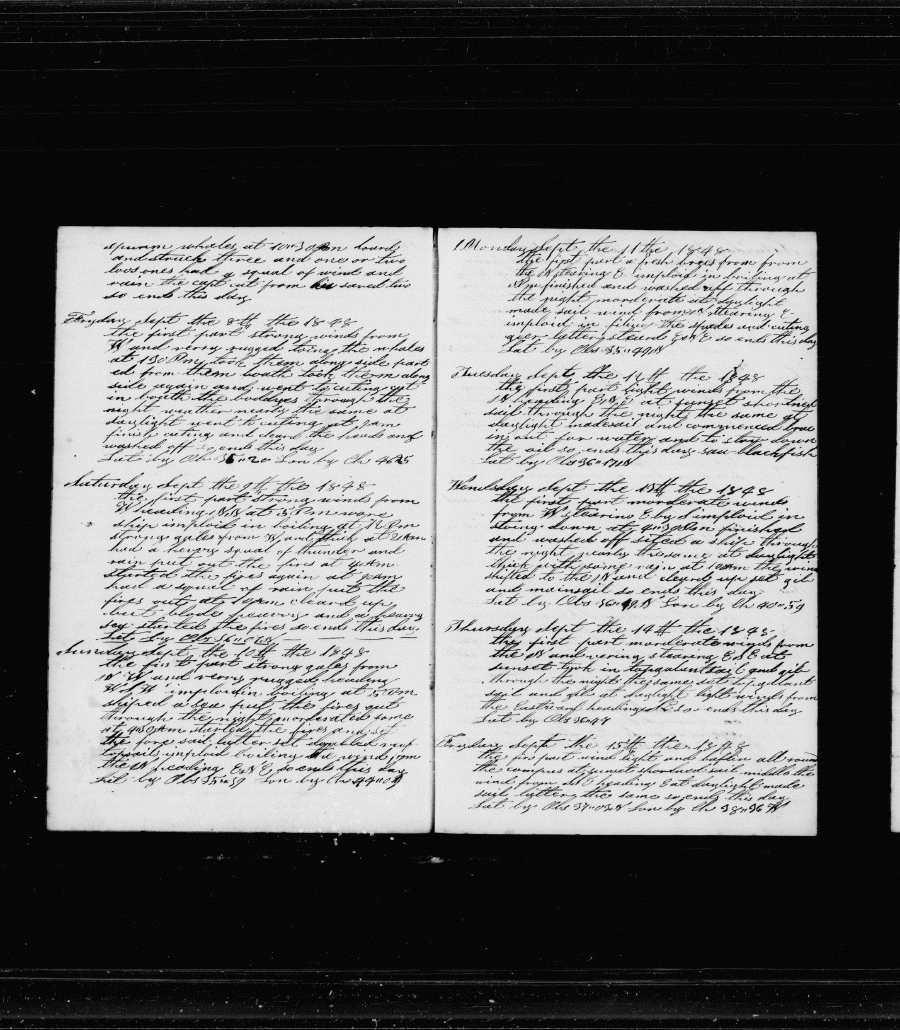 spurm whales at 10"30 Am lowerd
and struck three and one or two
loosones had a squal of wind and
rain the capt cut from his saved two
so ends this day
Fryday Sept the 8th the 1848
the first part strong winds from
W and verry rugged toing the whales
at 1"30 Pm took them along side part
ed from them both took them along
side again and went to cuting got
in booth the boddyes through the
night weather nearly the same at
daylight went to cuting at 9 am
finish cuting and cleard the heads and
washed off so ends this day
Lat by Ob 36"20 Lon by Ch 46"25
Saturday Sept the 9th the 1848
the first part strong winds from
W heading at 5 Pm wore
ship imploid in boiling at 12 Pm
strong gales from W and thick at 2 am
had a heavy squal of thunder and
rain put out the fires at 4 am
started the fires again at 7 am
had a squal of rain put the
fires out at 10 am cleard up
but blode heavy and a heavy
sea started the fires so ends this day
Lat by Obs 36"
Sunday Sept the 10th the 1848
the first part strong gales from
W and verry rugged heading
imploid in boiling at 5 Pm
shiped a sea put the fires out
through the night moderated some
at 4"30 Am started the fires and set
the fore sail after set doubled reef
topsails imploid boiling the wind from
the W heading E so ends this day
Lat by Obs 35"59 Lon by Ch 44"09
Monday Sept the 11the 1848
the first part a fresh brees from from
the W stearing E imploid in boiling at
Pm finished and washed off through
the night morderate at daylight
made sail wind from W stearing E
imploid in the spades and cuting
gear latter steard E so ends this day
Lat by Obs 35"49 N
Thuesday Sept the 12th the 1848
the first part light winds from the
N heading at sunset shortned
sail through the night the same at
daylight made sail and commenced brea
ing out for water and to stow down
the oil so ends this day saw blackfish
Lat by Obs 36"17 N
Wendsday Sept the 13th the 1848
the first part moderate winds
from W stearing E by S imploid in
stoing down at 4"30 Pm finished
and washed off sited a ship through
the night nearly the same at daylight
thick with some rain at 10 am the wind
shifted to the N and cleard up set gib
and mainsail so ends this day
Lat by Obs 36" N Lon by Ch 40"59
Thursday Sept the 14th the 1848
the first part morderate winds from
the N and vering stearing at
sunset took in topgalantsail and gib
through the night the same set top gallant
sail and gib at daylight light winds from
the Eastward heading so ends this day
Lat by Obs 36"47
Fryday Sept the 15th the 1848
the firs part wind light and baflen all round
the compas at sunset shortned sail middle the
wind from heading E at daylight made
sail latter the same so ends this day
Lat by Obs 37"03 N Lon by Ch 38"36 W